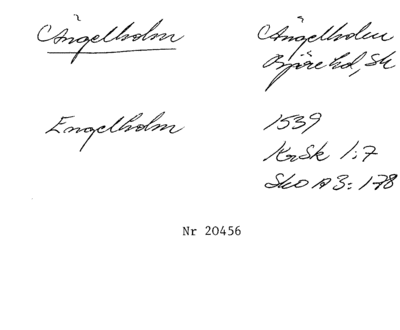 Ängelholm
Ängelholm
Bjäre hd, Sk
Engelholm
1539
KrSk 1:7
SkO A 3: 178
Nr 20456